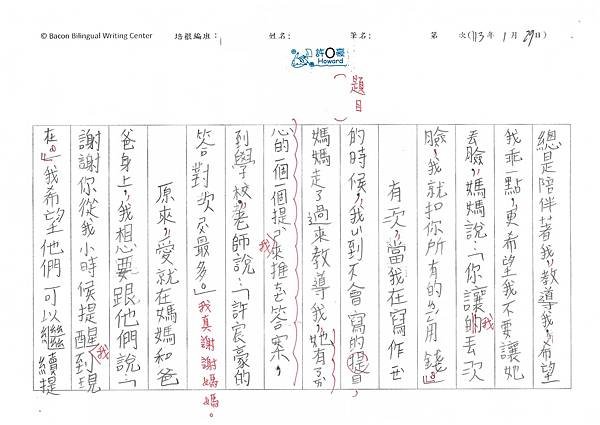 © Bacon Bilingual Writing Center 培根編班： 姓名： 筆名： 第 次(113年1月29日)
許O豪
Howard
總是陪伴著我，教導我，希望
我乖一點，更希望我不要讓她
丟臉，媽媽說：「你讓我丟一次
臉，我就扣你所有的零用錢。」
有一次，當我在寫作業
題目
的時候，我遇到不會寫的題目，
媽媽走了過來教導我，她有耐
心的一個一個提示我來推出答案，
到學校，老師說：「許宸豪的
答對次數最多。」我真謝謝媽媽。
原來，愛就在媽媽和爸
爸身上，我想要跟他們說：「
謝謝你從我小時候提醒我到現
在。」我希望他們可以繼續提